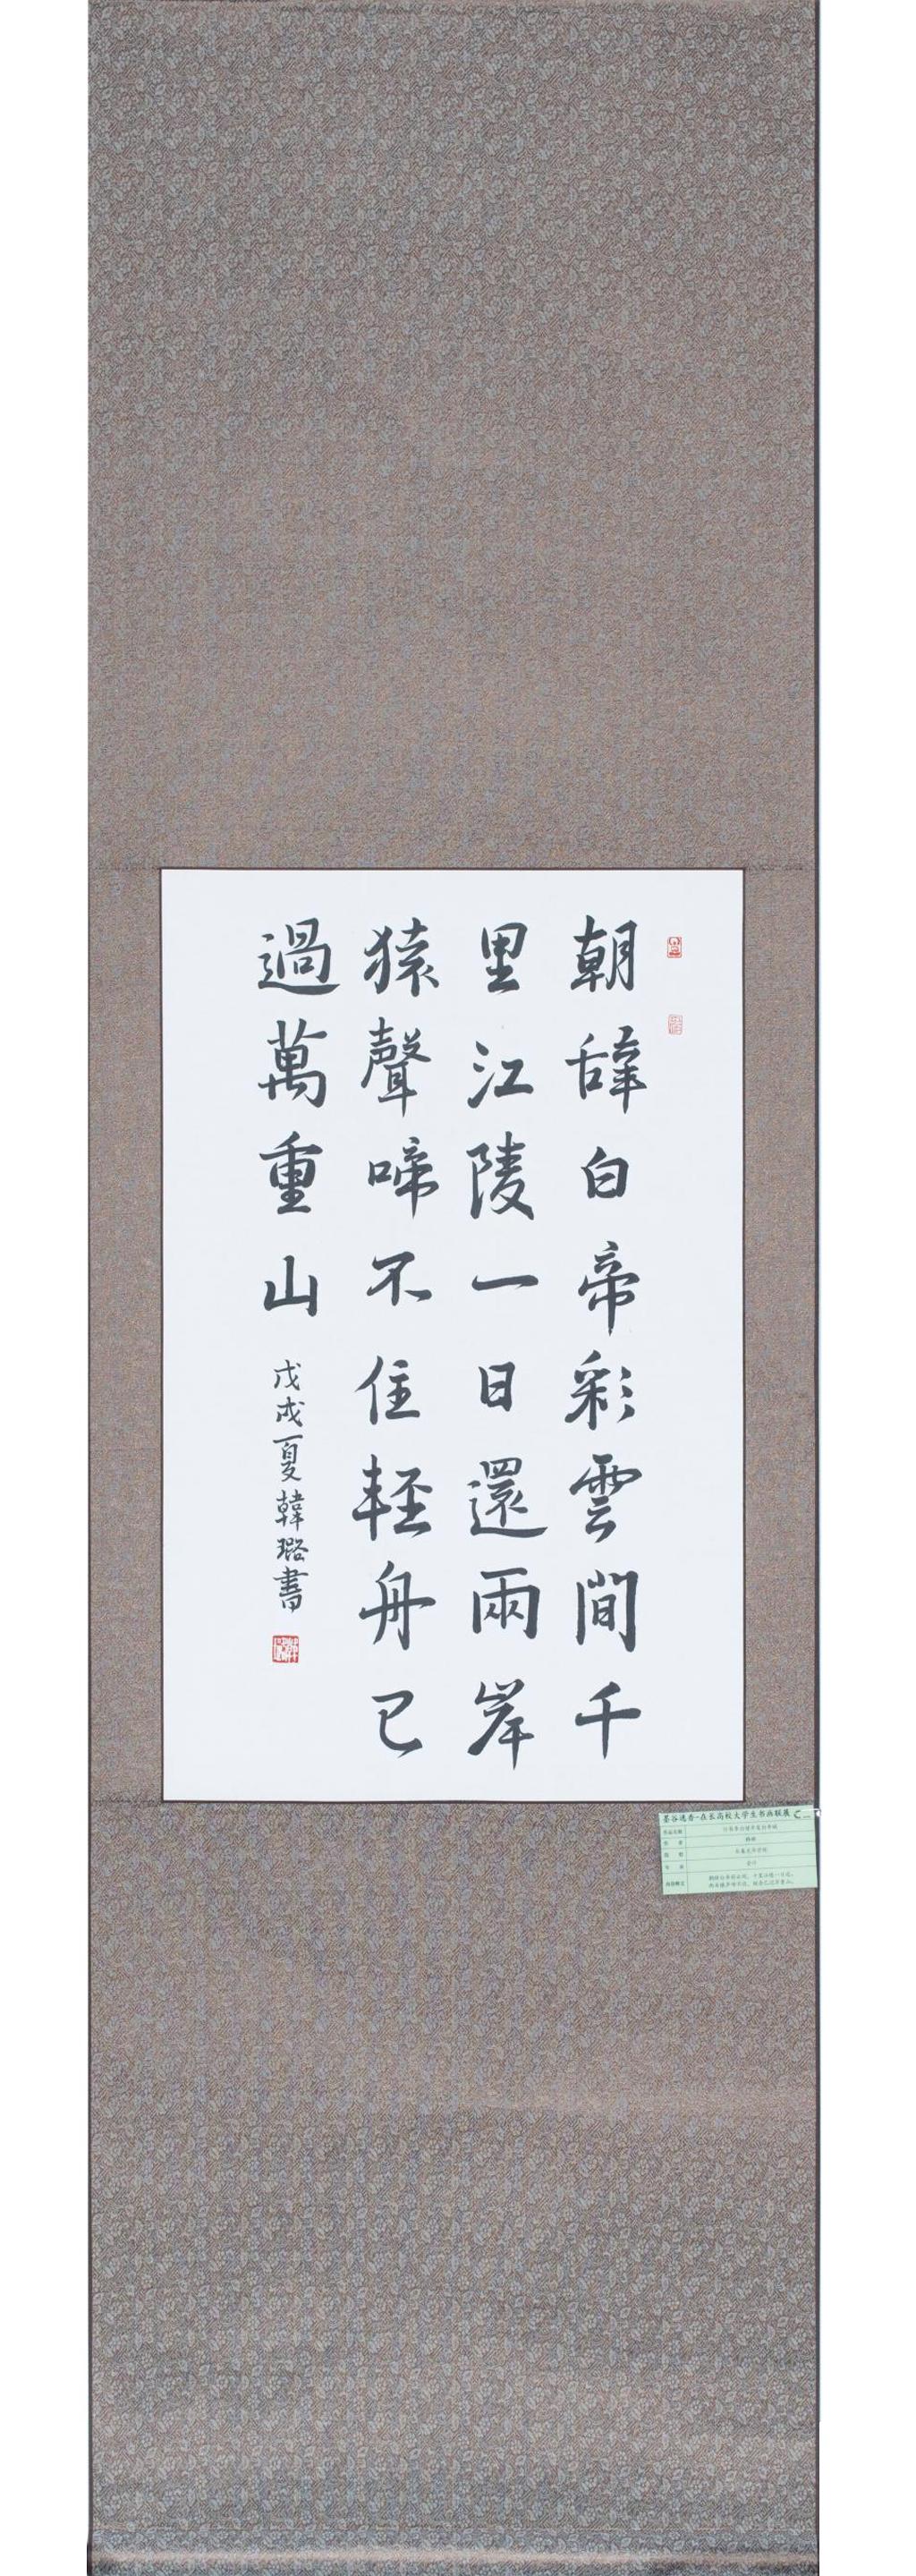 朝辝白帝彩雲間千
里江陵一日還兩岸
猿聲啼不住輕舟已
過萬重山
戊戌夏韓璐書
墨谷逸香-在长高校大学生书画联展